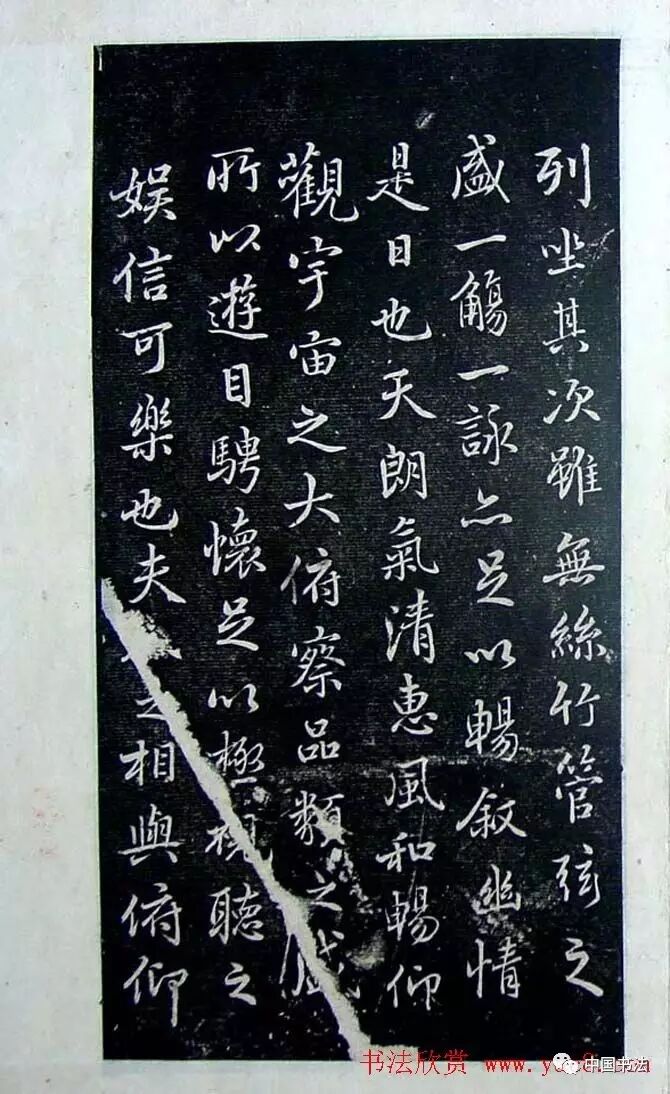 列坐其次雖無絲竹管弦之
盛一觴一詠亦足以暢叙幽情
是日也天朗氣清惠風和暢仰
觀宇宙之大俯察品類之盛
所以遊目騁懷足以極視聽之
娱信可樂也夫之相與俯仰
书法欣赏
中国书法